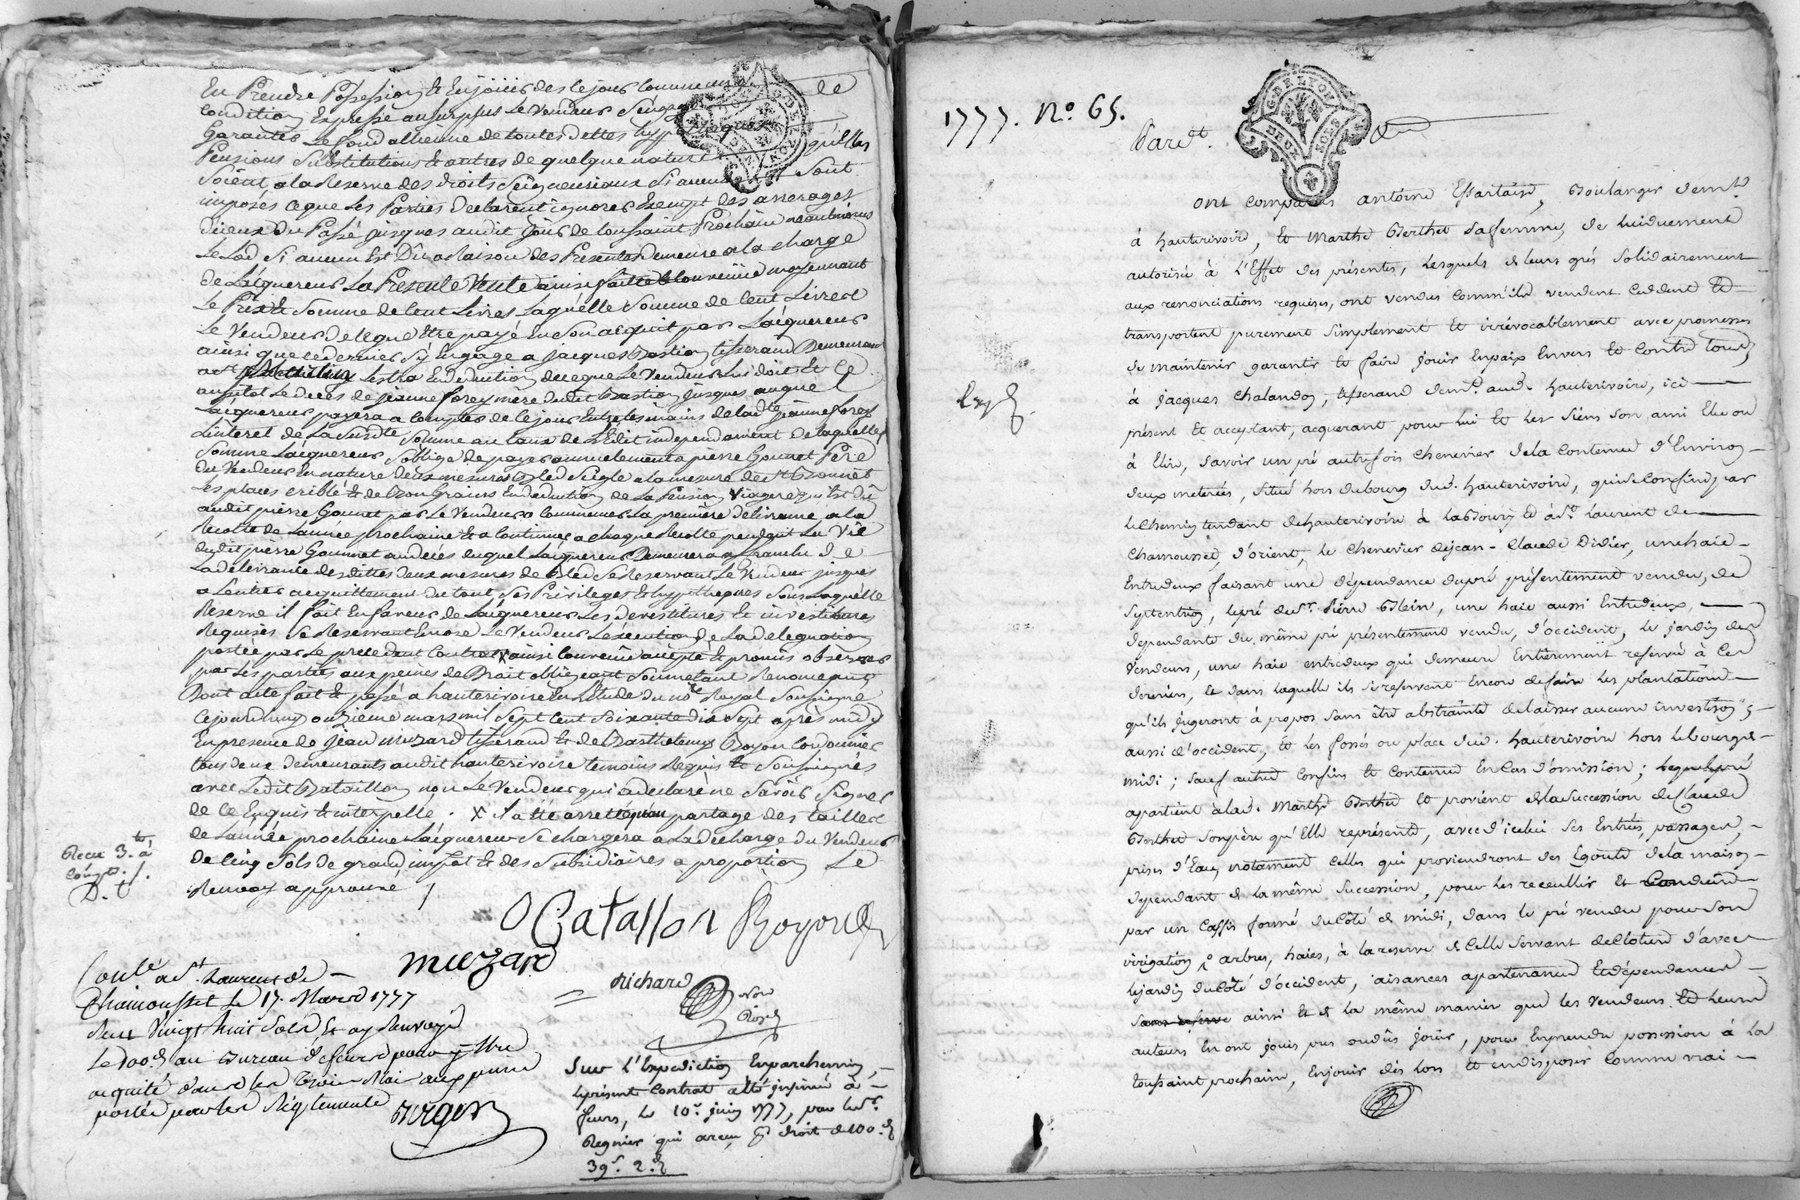 En Prendre Possession et Enjouir des ce jour
Condition Expresse au surplus Le Vendeur s'engage
Garantir Le fond alienné de toutes dettes hypotheques
Pensions Substitutions et autres de quelque nature qu'elles
Soient a la Reserve des droits Seigneuriaux Si aucuns Sont
imposés ce que Les Parties declarent ignorer Exempt des arrerages
d'iceux du Passé jusques audit jour de toussaint Prochain neantmoins
Le Lod Si aucun Est Dû a Raison des Presentes demeure a la charge
de L'acquereur La Presente Vente ainsi faitte et Convenüe moyennant
Le Prix et Somme de Cent Livres Laquelle Somme de Cent Livres
Le Vendeur delegue Etre payé En Son acquit par L'acquereur
ainsi que ce dernier S'y Engage a jacques Bastion tisserand Demeurant
En deduction de ce que Le Vendeur Lui doit Et Ce
aussitot Le deces de jeanne forey mere dudit Bastion jusques auquel
L'acquereur payera a Compter de ce jour Entre les mains de ladte jeanne forey
L'interet de La Susdite Somme au taux de L'Edit independament de laquelle
Somme L'acquereur S'oblige de payer annuelement a pierre Gounet Pere
du Vendeur En nature deux mesures Bled Seigle a la mesure de
Les places criblé et de Bon Grain En deduction de La Pension Viagere qu'Est dû
audit pierre Gounet par Le Vendeur a Commencer La premiere delivrance a la
Recolte de L'année prochaine Et a Continuer a chaque Recolte pendant La Vie
dudit pierre Gounet au deces duquel L'acquereur Demeurera affranchi De
La delivrance desdittes deux mesures de Bled Se Reservant Le Vendeur jusques
a L'entier acquittement du tout Ses Privileges Et hypotheques Sous Laquelle
Reserve il fait En faveur de L'acquereur Les devestitures Et investitures
Requises Se Reservant Encore Le Vendeur L'execution de La delegation
portée par Le precedant Contrat x ainsi Convenu accepté et promis observer
par Les parties aux peines de Droit obligeant Soumetant Renonceant
Dont acte fait Et passé a hauterivoire En L'Etude du nore Royal Soussigné
Cejourdhuy onzieme mars mil Sept Cent Soixante dix Sept après midy
En presence de jean muzard tisserand Et de Barthelemy Boyou Cordonnier
tous deux demeurants audit hauterivoire temoins Requis Et Soussignés
avec Ledit Bataillon non Le Vendeur qui a declaré ne Savoir Signer
de ce Enquis Et interpellé . x Il a été arretté qu'au partage des tailles
de L'année prochaine L'acquereur Se chargera a La decharge du Vendeur
de Cinq Sols de grand impot Et des Subsidiaires a proportion Le
Renvoy approuvé
Recu 3.tt a
Compt.
D. t
Catallon
muzard
Richard
Nore
Royal
Conlé a St Laurent de
Chamousset le 17. Mars 1777
Recu Vingt huit Sols Et ay Renvoyé
Le 100e au Bureau de feurs pour y Etre
acquité dans les trois Mois aux peines
portées par les Réglements
Sur l'Expedition En parchemin,
le présent contrat a été insinué à
feurs, le 10e juin 1777, par le Sr
Regnier qui a recu pr droit de 100e
39s. 2d
1777. No. 65.
Pardt.
G. DE LYON
DEUX SOLS
ont comparus antoine Essartaire, Boulanger demt
à hauterivoire, Et Marthe Berthet sa femme, de lui duement
autorisé à l'Effet des présentes, lesquels de leurs grés solidairement
aux renonciations requises, ont vendus comm'ils vendent Ceddent Et
transportent purement simplement Et irrévocablement avec promesses
de maintenir garantir Et faire jouir en paix Envers Et Contre tous,
à jacques Chalandon, tisserand demt aud. hauterivoire, ici
présent Et acceptant, acquerant pour lui Et les siens son ami Elu ou
à Elire, Savoir un pré autrefois chenevier de la contenue d'Environ
deux meterées, situé hors du bourg dud. hauterivoire, qui se confine par
le chemin tendant de hauterivoire à et à St Laurent de
Chamousset, d'orient, le chenevier de jean-Claude Didier, une haie
Entredeux faisant une dépendance du pré présentement vendu, de
Septentrion, le pré du Sr Pierre Blein, une haie aussi Entredeux,
dependante du même pré présentement vendu, d'occident, le jardin des
Vendeurs, une haie entredeux qui demeure Entièrement reservée à Ces
derniers, Et dans laquelle ils se reservent Encore de faire les plantations
qu'ils jugeront à propos sans être abstraints de laisser aucune investison;
aussi d'occident, Et les fossés ou place dud. hauterivoire hors le bourg de
midi; sauf autres confins Et contenue En Cas d'omission; lequel pré
apartient à lad. Marthe Berthet Et provient de la Succession de Claude
Berthet son père qu'Elle représente, avec d'icelui ses Entrées, passages,
prises d'Eau notament celles qui proviendront des Egouts de la maison
dependant de la même succession, pour les receuillir Et Conduire
par un formé du côté de midi, dans le pré vendu pour son
irrigation, arbres, haies, à la reserve de Celle servant de Cloture d'avec
le jardin du côté d'occident, aisances apartenances Et dépendances
ainsi Et de la même manière que les vendeurs Et leurs
auteurs En ont jouis pus ou dûs jouir, pour En prendre possession à la
toussaint prochain, Enjouir dès lors Et en disposer Comme vrai